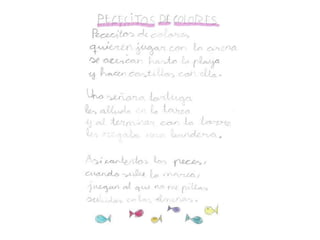 PECECITOS DE COLORES
Pececitos de colores
quieren jugar con la arena
se acercan hasta la playa
y hacen castillos con ella.
Una señora tortuga
les alluda en la tarea
y al terminar con la torre
les regala una bandera.
Asi contentos los peces,
cuando sube la marea,
juegan al que no me pillas
subidos en las almenas.